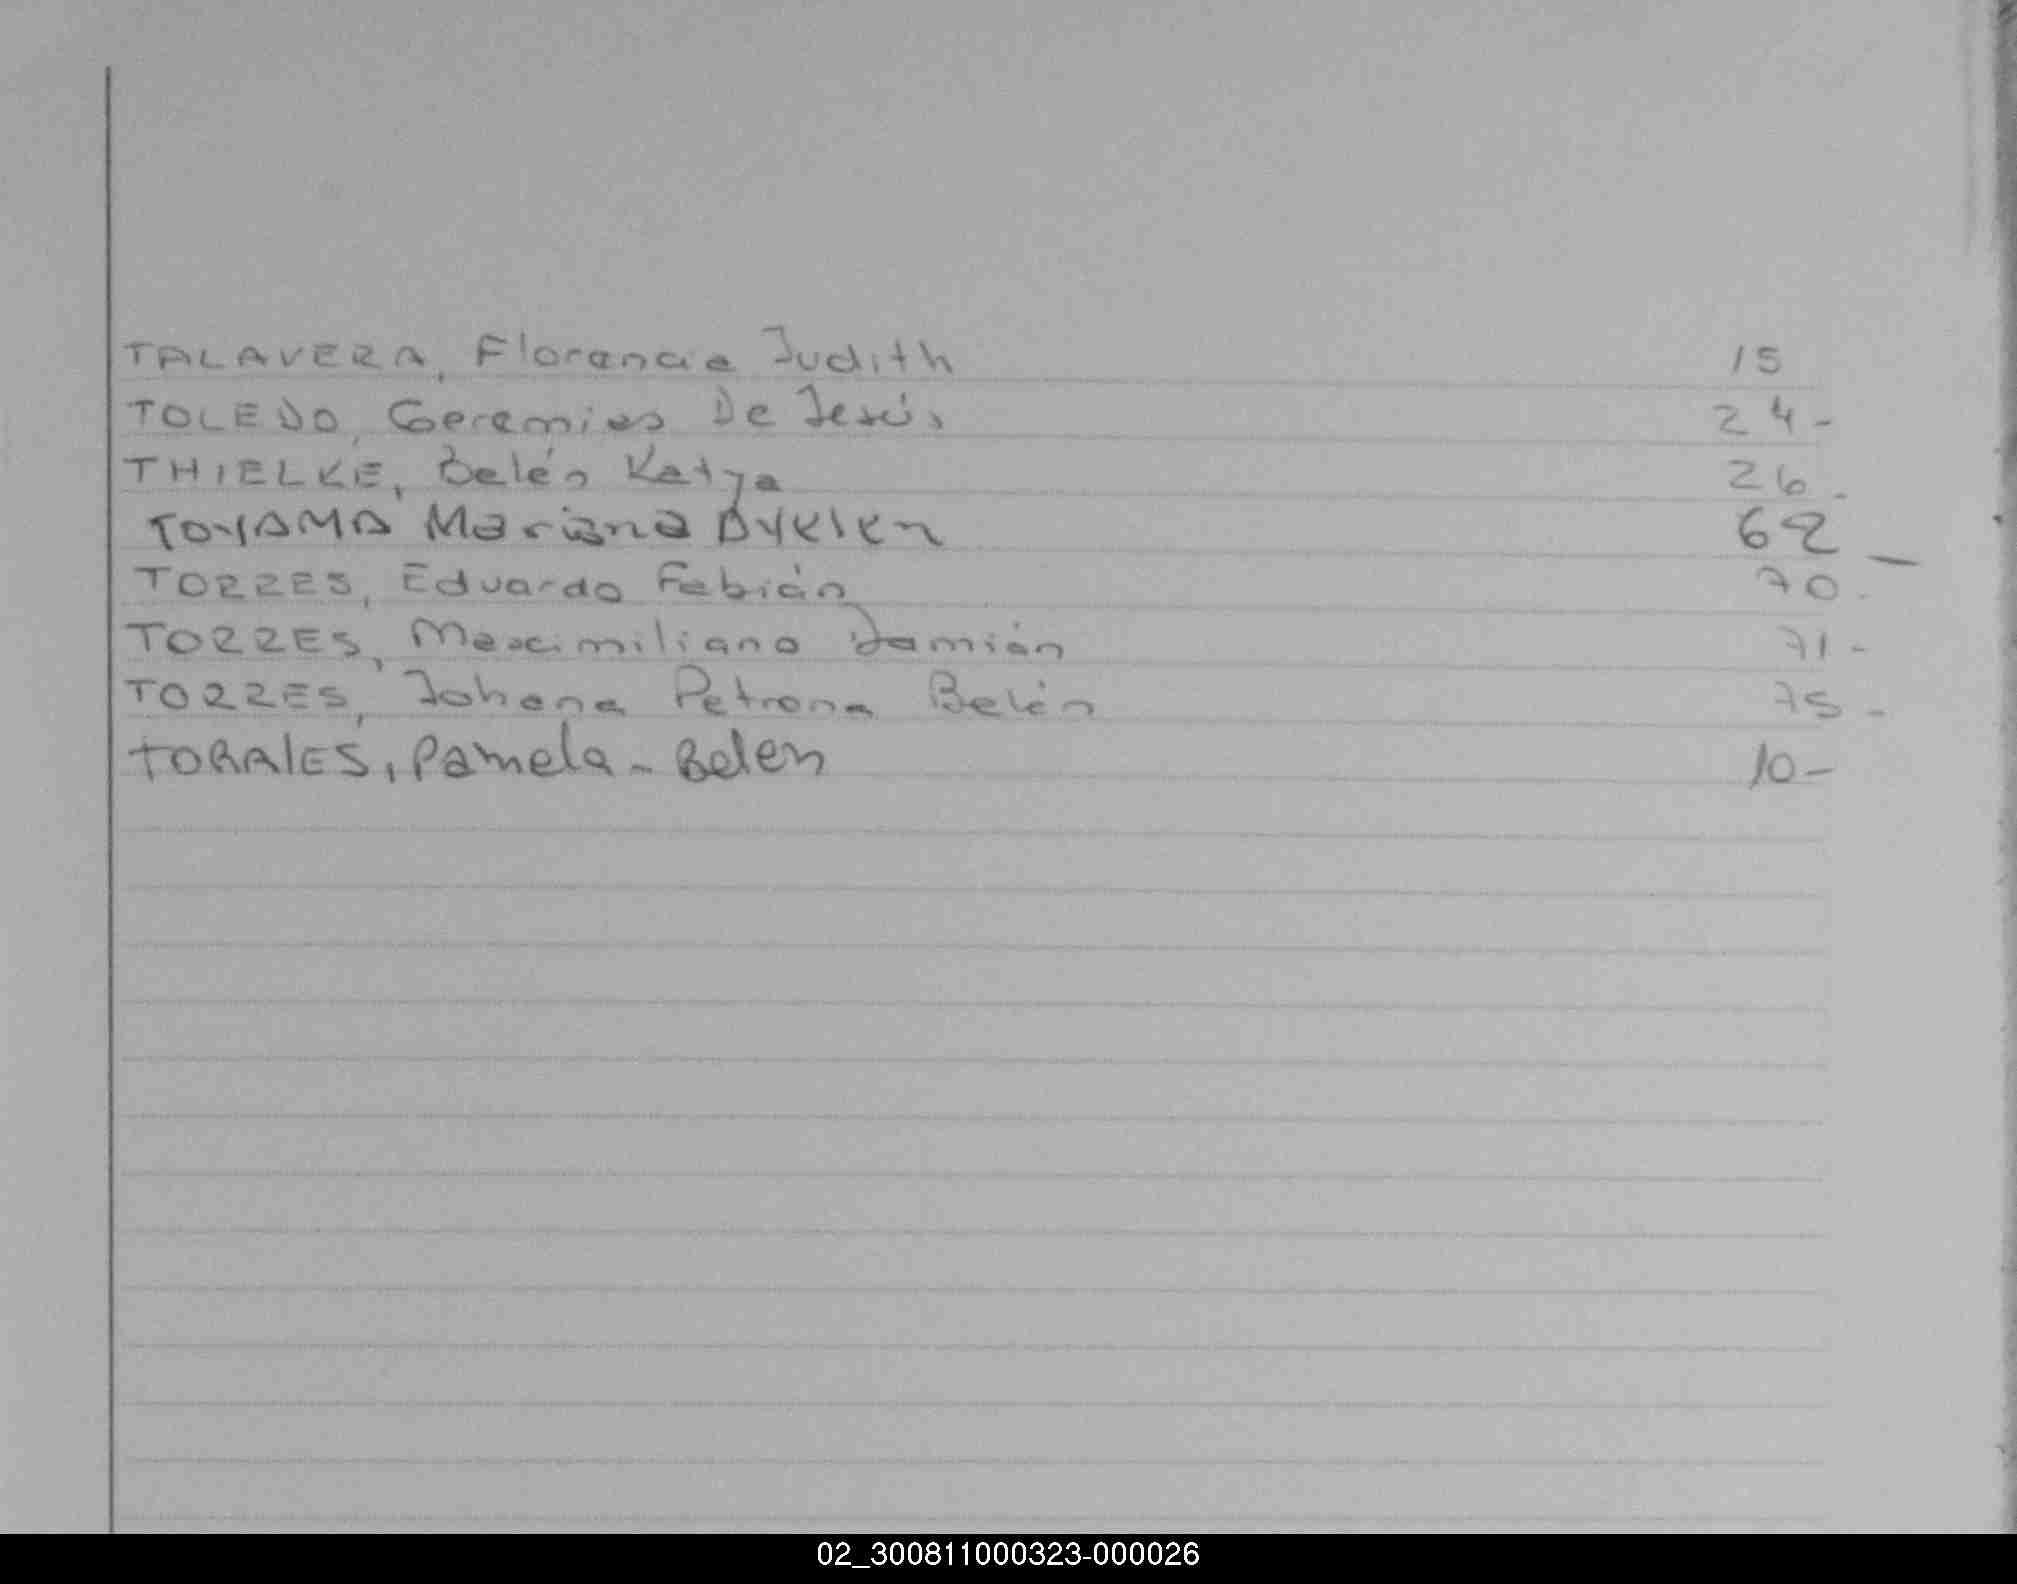 TALAVERA, Florencia Judith 15
TOLEDO, Geremias De Jesús 24-
THIELKE, Belén Katya 26.
TOYAMA Mariana Ayelen 62 -
TORRES, Eduardo Fabián 70.
TORRES, Maximiliano Damián 71-
TORRES, Johana Petrona Belén 75-
TORALES, Pamela - Belen 10-
02_300811000323-000026